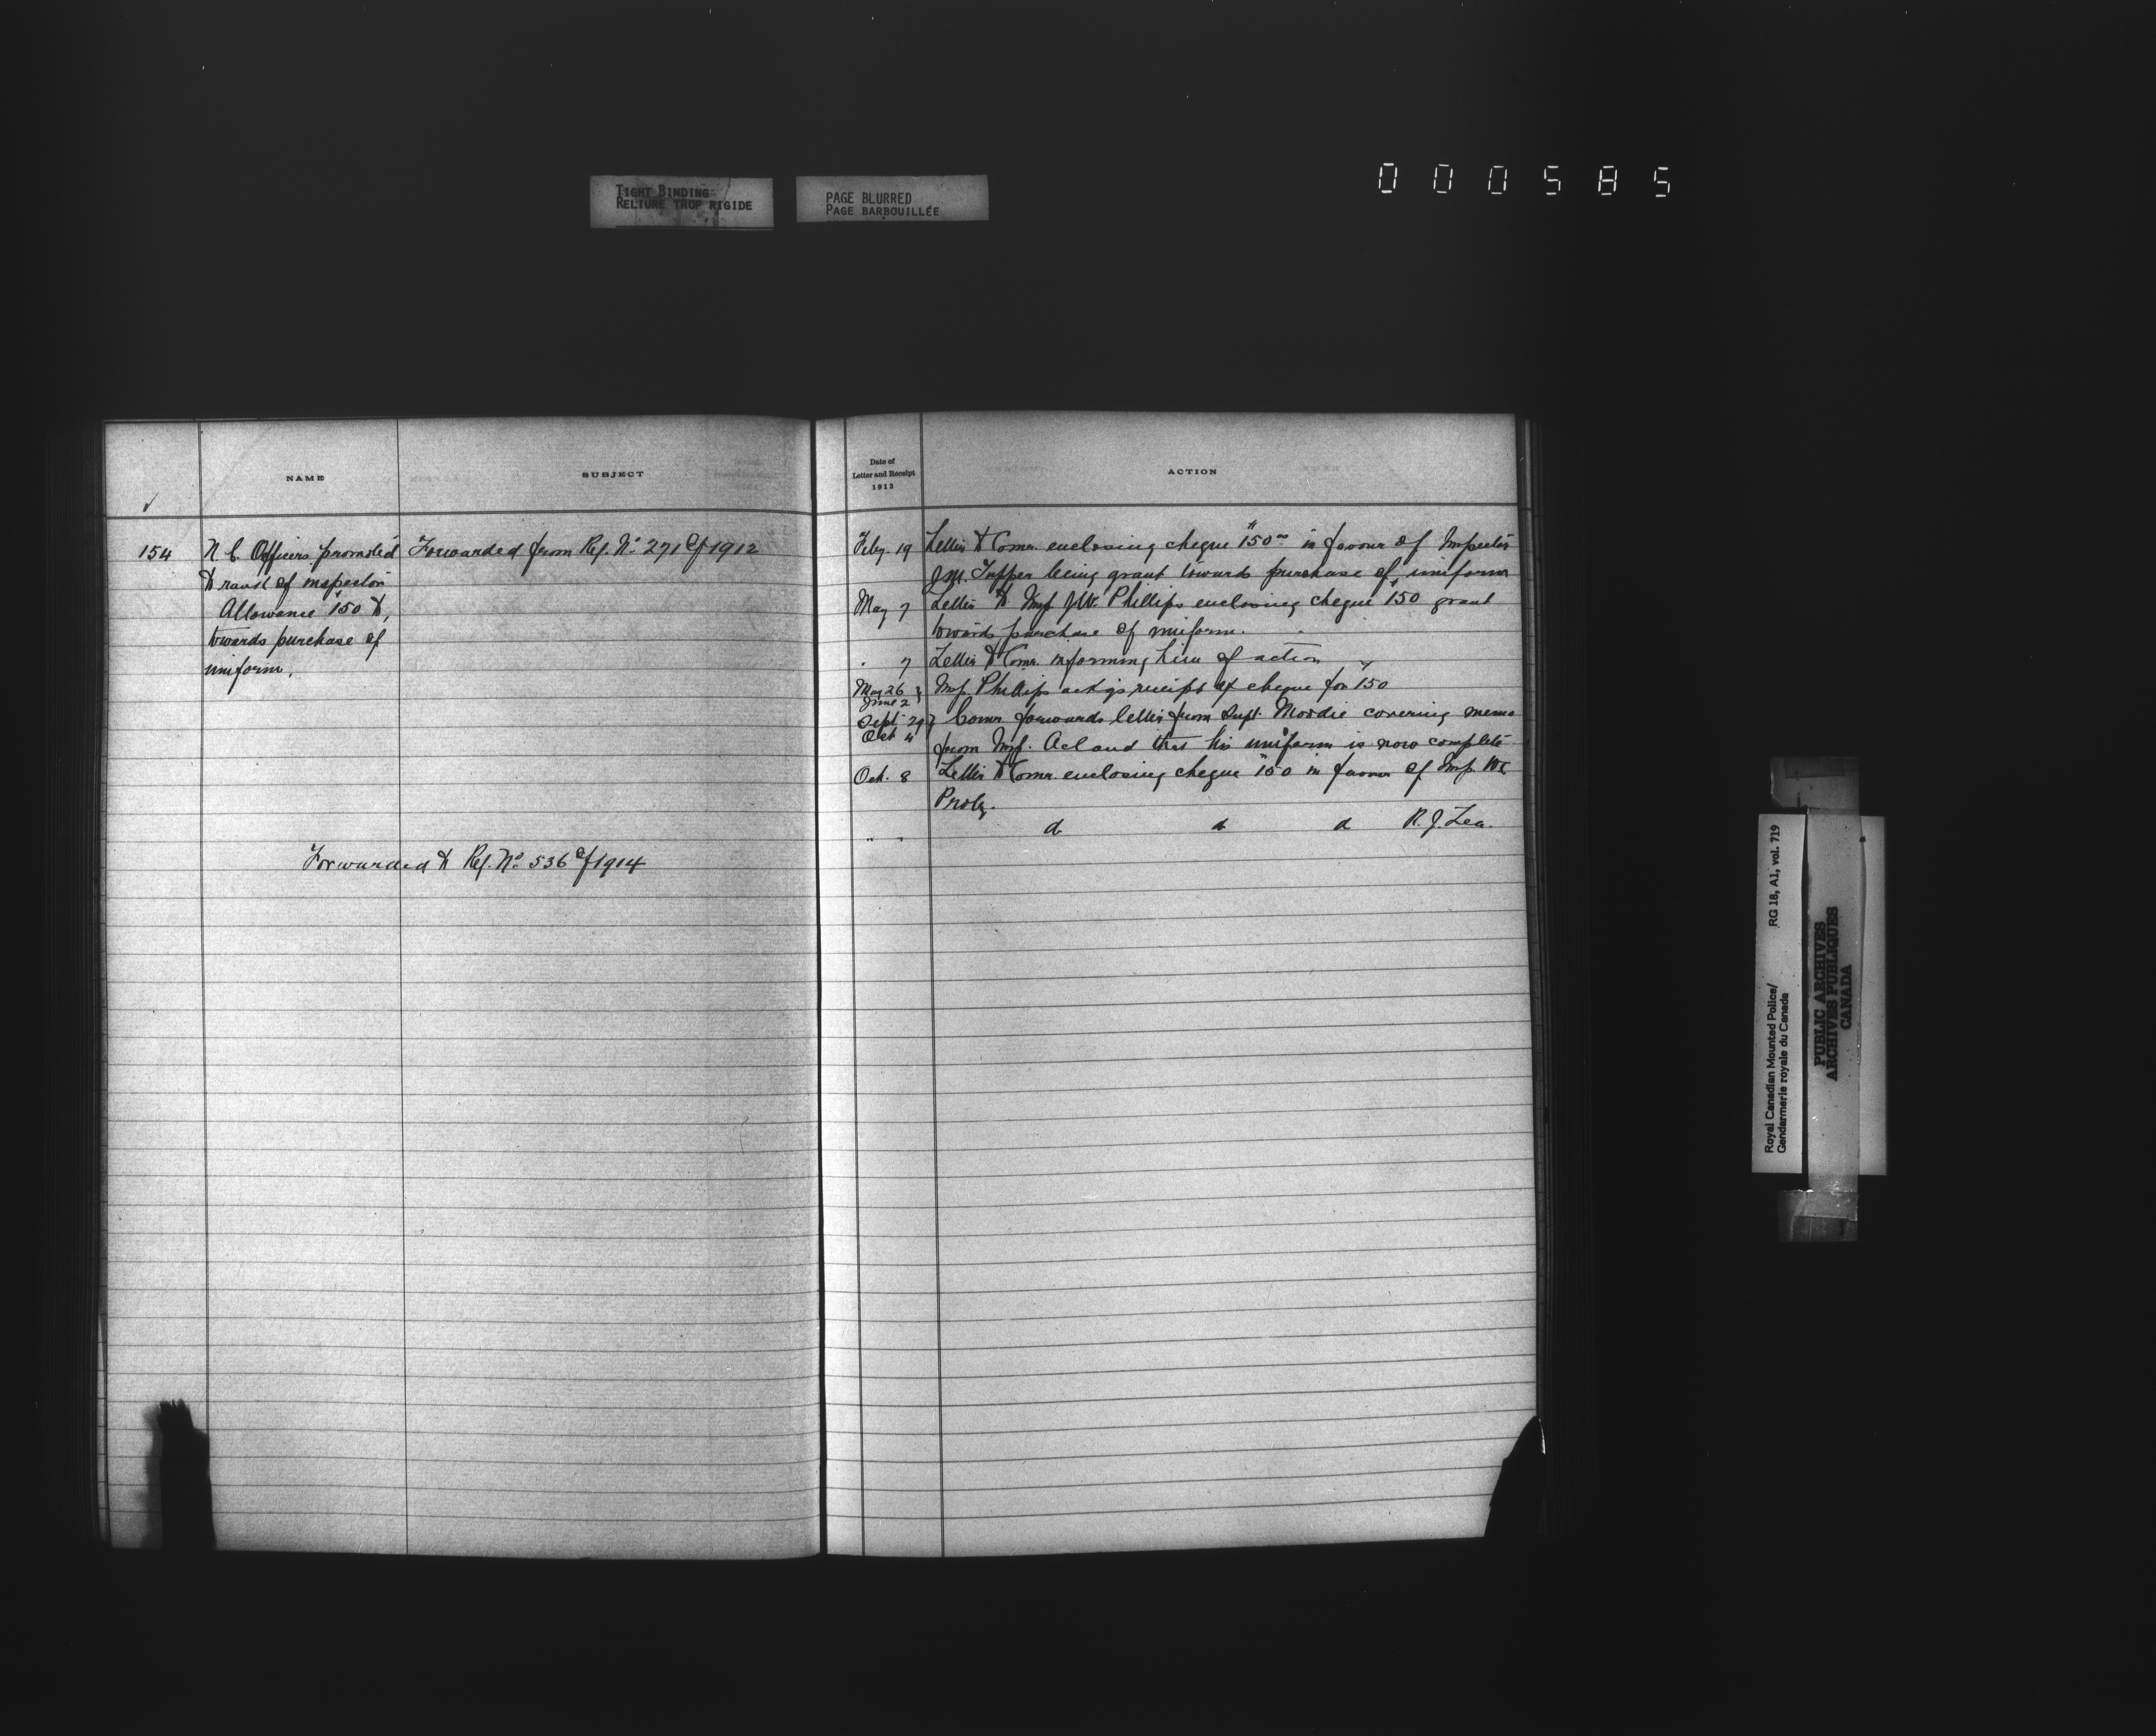 TIGHT BINDING
RELIURE TROP RIGIDE
PAGE BLURRED
PAGE BARBOUILLÉE
000585
NAME
SUBJECT
Date of
Letter and Receipt
1913
ACTION
154 N. C. Officers promoted Forwarded from Ref. No 271 of 1912
to rank of inspector
Allowance $150 to,
towards purchase of
uniform.
Forwarded to Ref. No 536 of 1914
Feby. 19 Letter to Comr. enclosing cheque $150.00 in favour of Inspector
J.M. Tupper being grant towards purchase of uniform
May 7 Letter to Insp J.W. Phillips enclosing cheque $150 grant
towards purchase of uniform.
" 7 Letter to Comr. informing him of action
May 26 Insp. Phillips ackgs receipt of cheque for $150
June 2
Sept 29 Comr forwards letter from Supt. Moodie covering memo
Oct 4 from Insp. Acland that his uniform is now complete
Oct. 8 Letter to Comr enclosing cheque $150 in favour of Insp.
Proby.
" " do do do R. J. Lea.
Royal Canadian Mounted Police/
Gendarmerie royale du Canada
RG 18, A1, vol. 719
PUBLIC ARCHIVES
ARCHIVES PUBLIQUES
CANADA